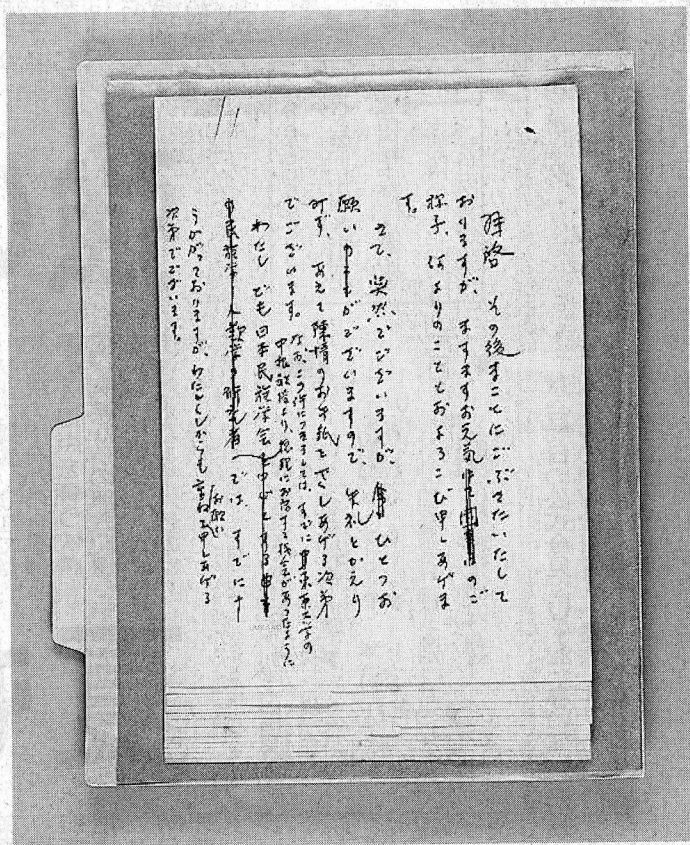 拝啓 その後まことにごぶさたいたして
おりますが、ますますお元気 のご
様子、何よりのこととおよろこび申しあげま
す。
さて、突然でございますが、 ひとつお
願い がございますので、失礼をかえり
みず、あえて陳情のお手紙をさしあげる次第
でございます。なお、この件につきましては、すでに 東京大学の
中根教授より、総理にお話する機会があったように
わたしども日本民族学会を中心とする
民族学・人類学の研究者 では、すでに十
うかがっておりますが、わたくしからも重ねてお願い申しあげる
次第でございます。